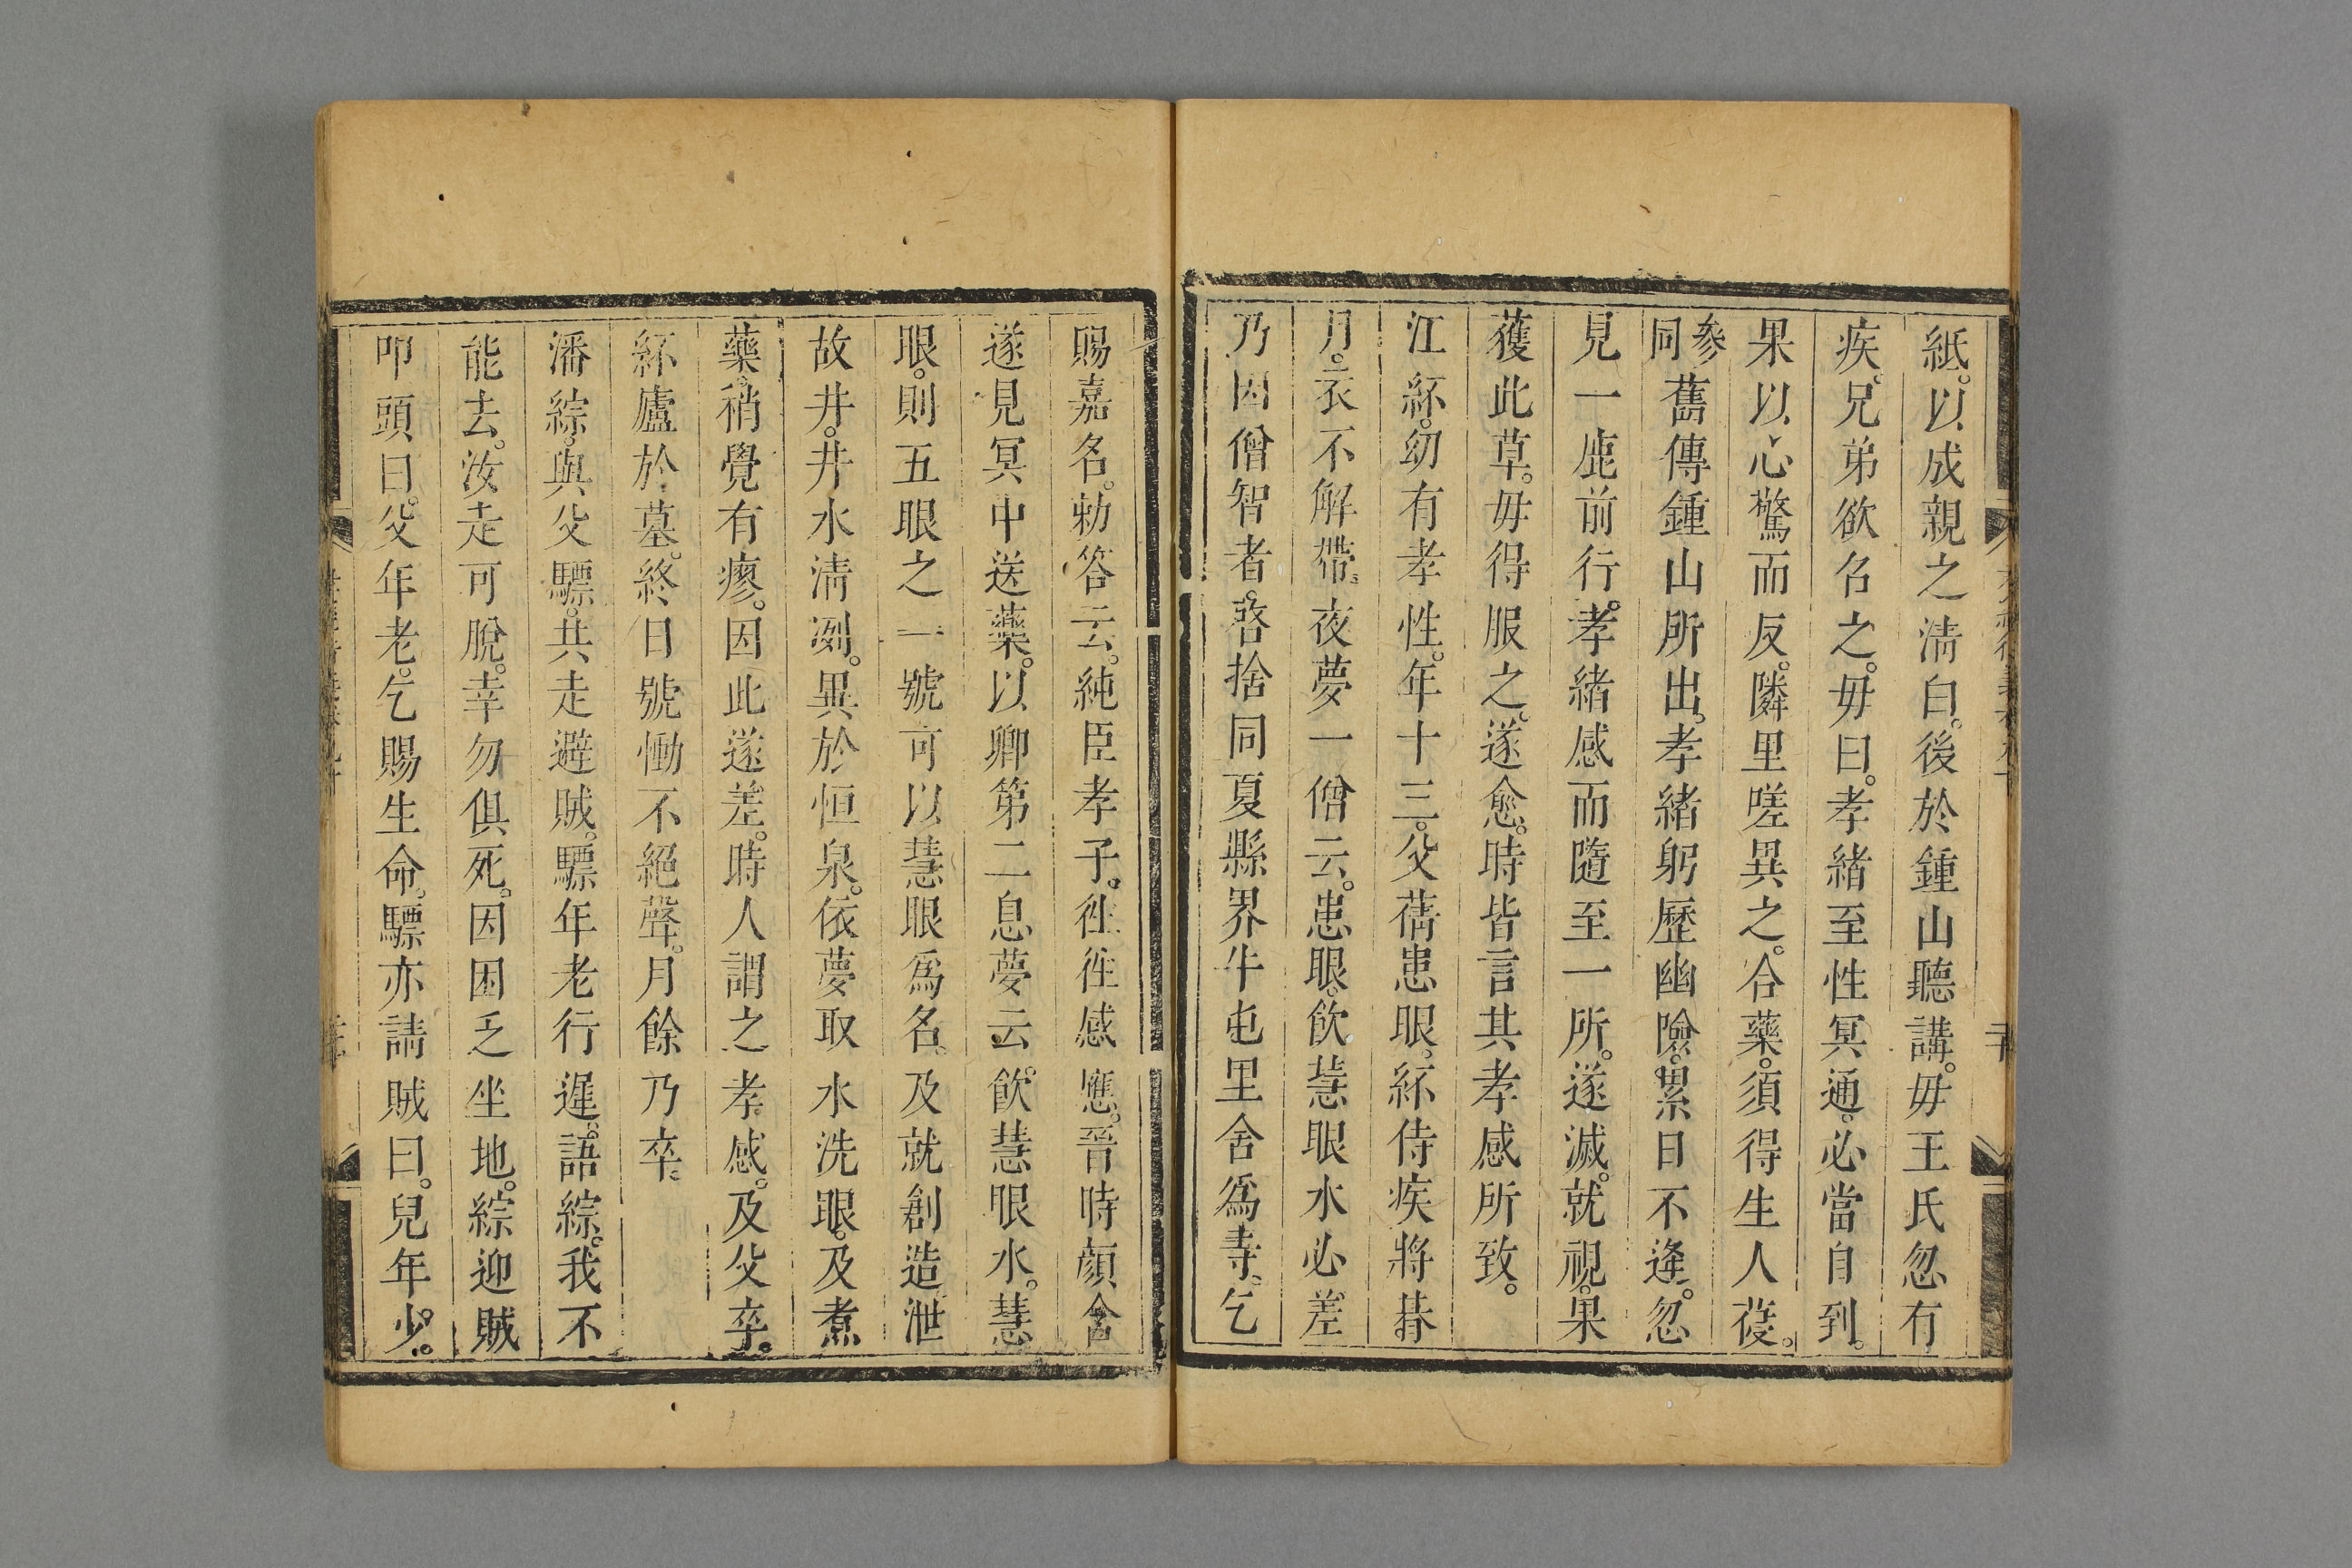 紙。以成親之清白。後於鍾山聽講。毋王氏忽有
疾。兄弟欲名之。毋曰。孝緒至性冥通。必當自到。
果以心驚而反。隣里嗟異之。合藥。須得生人葠。
參同
舊傳鍾山所出。孝緒躬歷幽險。累日不逢。忽
見一鹿前行。孝緒感而隨至一所。遂滅。就視。果
獲此草。毋得服之。遂愈。時皆言其孝感所致。
江紑。幼有孝性。年十三。父蒨患眼。紑侍疾將朞
月。衣不解帶。夜夢一僧云。患眼。飲慧眼水必差
乃因僧智者。啓捨同夏縣界牛屯里舍爲寺。乞
賜嘉名。勅答云。純臣孝子。徃徃感應。晉時顔含
遂見冥中送藥。以卿第二息夢云。飲慧眼水。慧
眼。則五眼之一號可以慧眼爲名。及就創造泄
故井。井水清洌。異於恒泉。依夢取水洗眼。及煮
藥。稍覺有瘳。因此遂差。時人謂之孝感。及父卒。
紑廬於墓。終日號慟不絕聲。月餘乃卒。
潘綜。與父驃。共走避賊。驃年老行遲。語綜。我不
能去。汝走可脫。幸勿俱死。因困乏坐地。綜迎賊
叩頭曰。父年老。乞賜生命。驃亦請賊曰。兒年少。